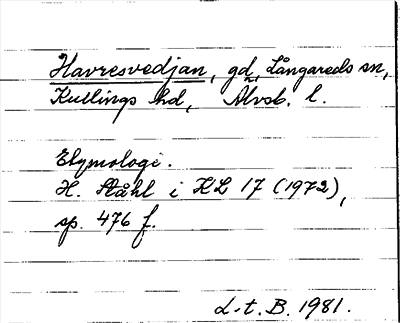 Havresvedjan, gd, Långareds sn,
Kullings hd, Älvsb. l.
Etymologi.
H. Ståhl i KL 17 (1972),
sp. 476 f.
L.t.B. 1981.